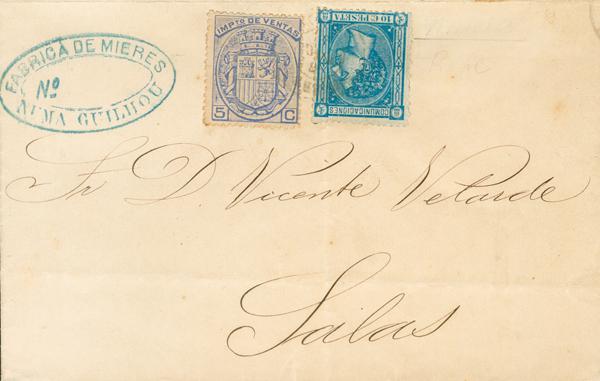 FABRICA DE MIERES
Nº
NUMA GUILHOU
IMPTO DE VENTAS
5 C
10 C. PESETA
COMUNICACIONES
Sr. D. Vicente Velarde
Salas